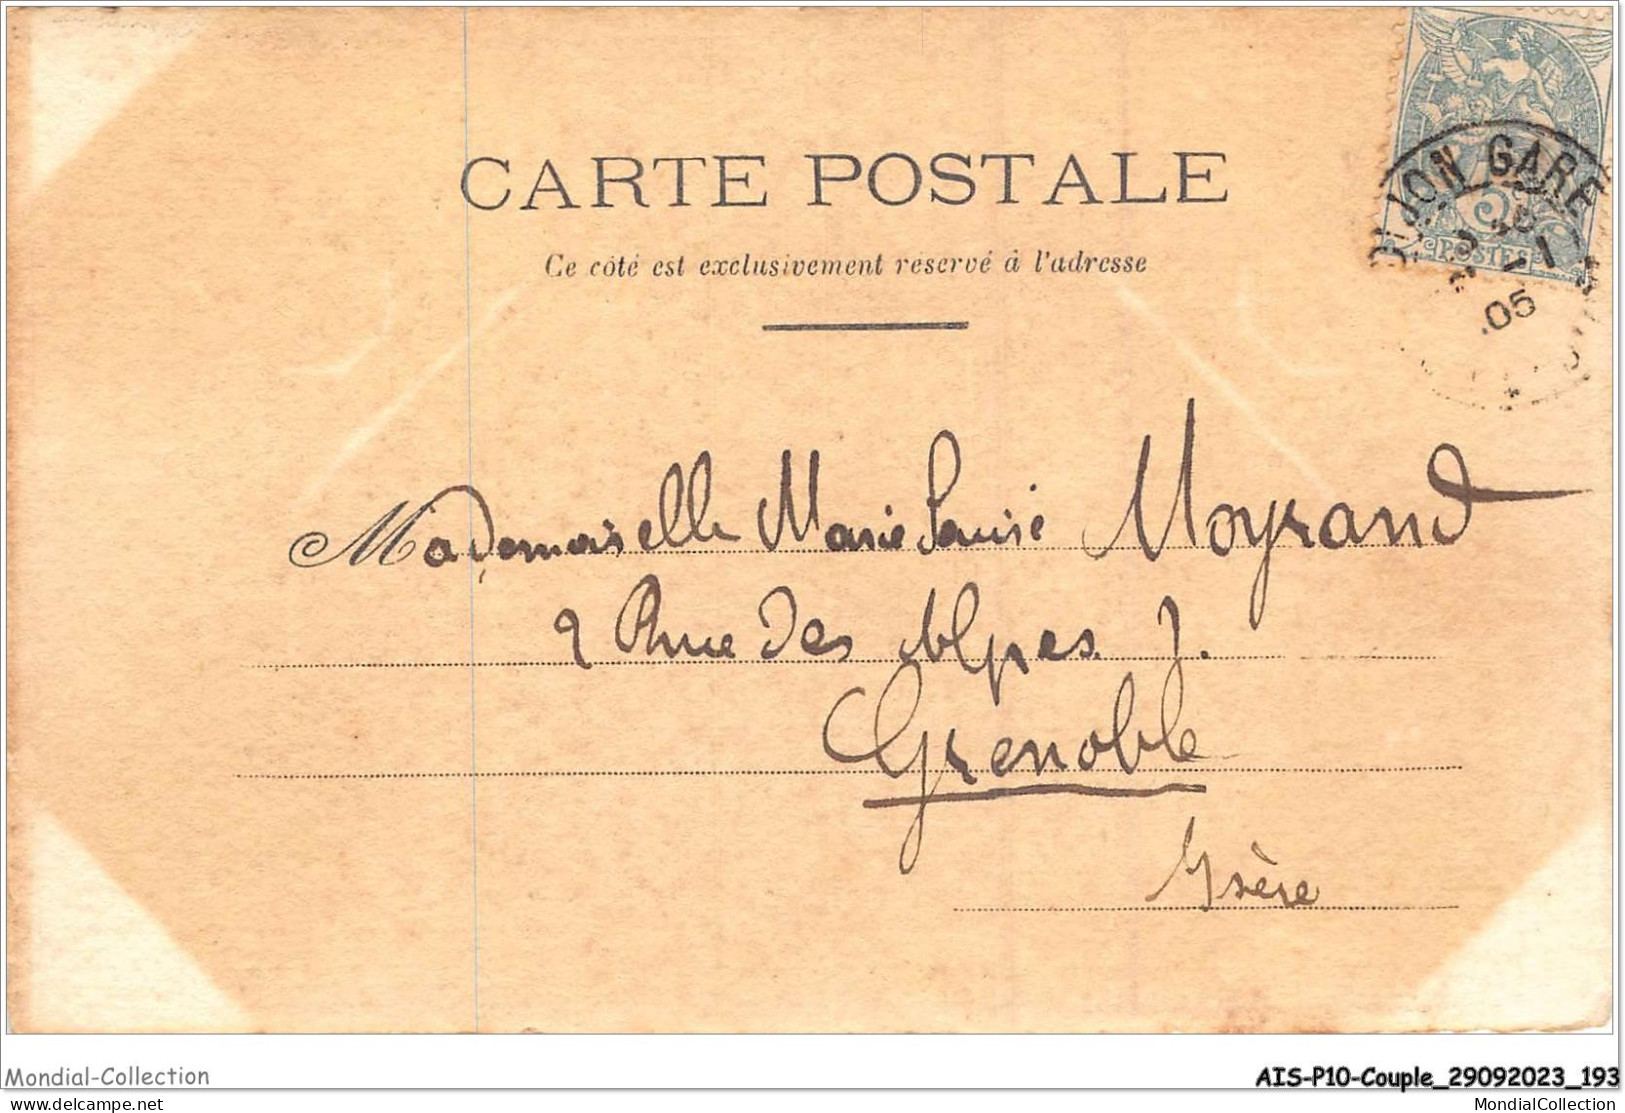 CARTE POSTALE
Ce côté est exclusivement réservé à l'adresse
DIJON GARE
POSTES
05
Mademoiselle Marie Louise Moyrand
2 Rue des Alpes. J.
Grenoble
Isère
Mondial-Collection
AIS-P10-Couple_29092023_193
www.delcampe.net
MondialCollection